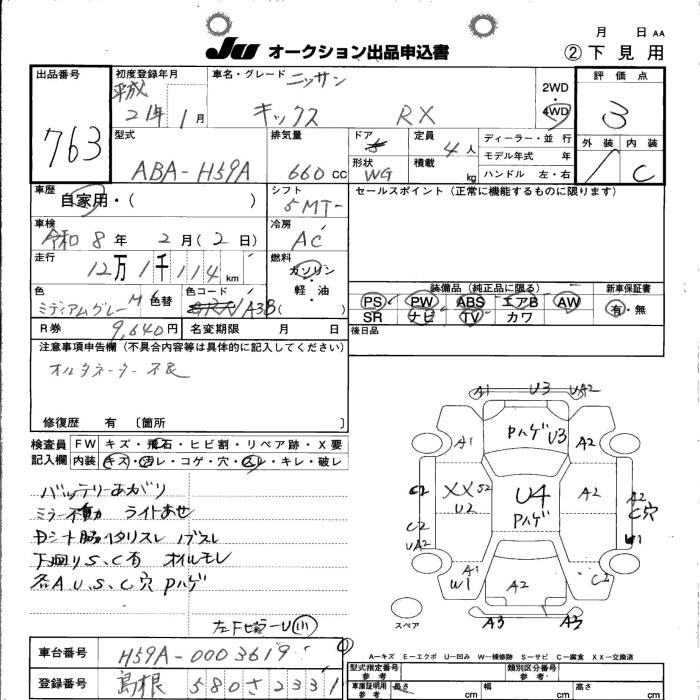 月 日 AA
JU オークション出品申込書 ②下見用
出品番号 初度登録年月 車名・グレード ニッサン 2WD 評価点
763 平成 21年 1月 キックス RX 4WD 3
型式 排気量 ドア 5 定員 4人 ディーラー・並行 外装 内装
ABA-H59A 660cc 形状 WG 積載 kg モデル年式 年 C
ハンドル 左・右
車歴 シフト セールスポイント(正常に機能するものに限ります)
自家用・( ) 5MT-
車検 冷房
令和 8年 2月(2日) AC
走行 燃料
12万1千114km ガソリン・軽油
色 色替 色コード 装備品(純正品に限る) 新車保証書
ミディアムグレーM A38( PS PW ABS エアB AW 有・無
SR ナビ TV カワ
R券 9,640円 名変期限 月 日 後日品
注意事項申告欄(不具合内容等は具体的に記入してください)
オルタネーター不良
修復歴 有 〔箇所
検査員 FW キズ・飛石・ヒビ割・リペア跡・X要
記入欄 内装 キズ・汚レ・コゲ・穴・スレ・キレ・破レ
バッテリーあがり
ミラー不動 ライトあせ
Dシート ハゲスレ
下廻りS、C有 オイルモレ
各A、U、S、C穴 Pハゲ
A1 U3 UA2
A1 Pハゲ U3 A2
C2 XX S2 U2 U4 Pハゲ A2 A2 C穴
C2 UA2 W1
A1 W1 A2 C2
A3 A3
スペア
A−キズ E−エクボ U−凹み W−補修跡 S−サビ C−腐食 XX−交換済
車台番号 H59A-0003619
型式指定番号 参考 類別区分番号 参考
登録番号 島根 580さ2331
車庫証明用 参考 長さ cm 幅 cm 高さ cm